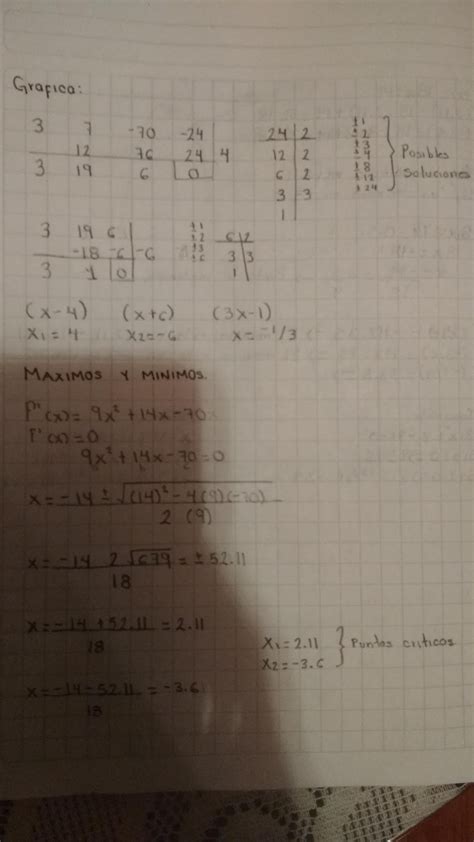 Grafica:
3 7 -70 -24
12 76 24 4
3 19 6 0
24 2
12 2
6 2
3 -3
1
±1
±2
±3
±4
±8
±12
±24
Posibles
soluciones
3 19 6
-18 -6 -6
3 1 0
±1
±2
±3
±6
6 2
3 3
1
(x-4) (x+6) (3x-1)
x₁=4 x₂=-6 x=-1/3
MAXIMOS Y MINIMOS.
(x)= 9x²+14x-70
(x)=0
9x²+14x-70=0
x=-14±√(14)²-4(9)(-70)
2 (9)
x=-14 2√679 = ±52.11
18
x=-14+52.11 = 2.11
18
x₁=2.11
x₂=-3.6
Puntos criticos
x=-14-52.11 = -3.6
18